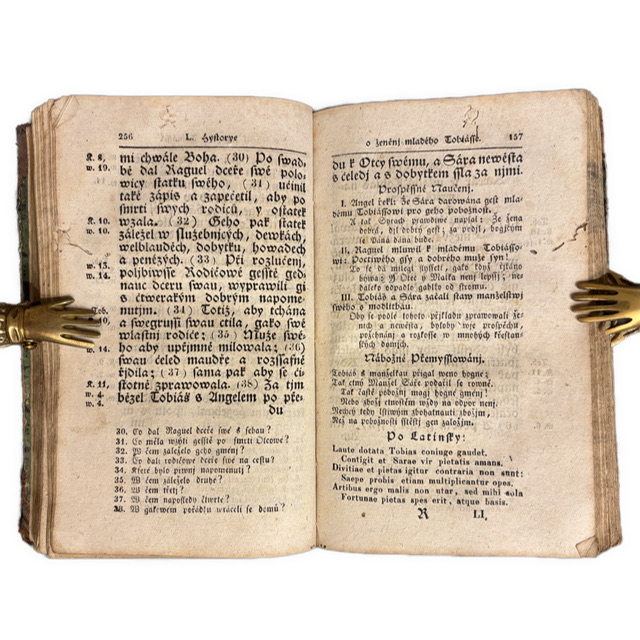 256 L. Hystorye
K. 8, mi chwále Boha. (30) Po swad,
w. 19. bě dal Raguel dceře swé po,
lowicy statku swého, (31) učinil
také zápis a zapečetil, aby po
smrti swých rodičů, y ostatek
K. 10. wzala. (32) Geho pak statek
w. 10. záležel w služebnicých, děwkách,
welblaudech, dobytku, howadech
a penězých. (33) Při rozlučenj,
w. 13. poljbiwsse Rodičowé gesstě ged,
w. 14. nauc dceru swau, wyprawili gi
s čtwerakým dobrým napome,
Tob. nutjm. (34) Totiž, aby tchána
10, a swegrussi swau ctila, gako swé
wlastnj rodiče; (35) Muže swé,
w. 14. ho aby upřjmně milowala; (36)
swau čeled maudře a rozssafně
řjdila; (37) sama pak aby se ci,
K. 11, stotně zprawowala. (38) Za tjm
w. 4. běžel Tobiáš s Angelem po pře,
w. 4. du
30. Co dal Raguel dceři swé s sebau?
31. Co měla wzýti gesstě po smrti Otcowě?
32. W čem záleželo geho gměnj?
33. Co dali rodičowé dceři swé na cestu?
34. Které bylo prwnj napomenutj?
35. W čem záleželo druhé?
36. W čem třetj?
37. W čem naposledy čtwrté?
38. W gakowém pořádku wraceli se domů?
o ženěnj mladého Tobiásse. 157
du k Otcy swému, a Sára newěsta
s čeledj a s dobytkem ssla za njmi.
Prospěssné Naučenj.
I. Angel řekl: Že Sára darowána gest mla,
dému Tobiássowi pro geho pobožnost.
A tak Syrach prawdiwě napsal: Že žena
dobrá, djl dobrý gest; za podjl, bogjcým
se Pána dána bude.
II. Raguel mluwil k mladému Tobiásso,
wi: Poctiwého gsy a dobrého muže syn!
To se dá milegi slysseti, gako když řjkáno
býwá: Y Otec y Matka nebyl lepssj; ne,
daleko odpadlo gablko od stromu.
III. Tobiáš a Sára začali staw manželstwj
swého s modlitbau.
Aby se podle tohoto přjkladu zprawowali že,
nich a newěsta, byloby wjce prospěchu,
požehnánj a rozkosse w mnohých křestian,
ských domjch.
Nábožné Přemysslowánj.
Tobiáš s manželkau přigal weno hogné;
Tak ctný Manžel Sáře podařil se rowně.
Tak časté pobožnj magj hogné gměnj!
Nebo zbožj ctnostem wždy na odpor nenj.
Nechcy tedy lstiwým zbohatnauti zbožjm,
Než na pobožnosti sstěstj gen založjm.
Po Latinsky:
Laute dotata Tobias coniuge gaudet.
Contigit et Sarae vir pietatis amans.
Divitiae et pietas igitur contraria non sunt:
Saepe probis etiam multiplicantur opes.
Artibus ergo malis non utar, sed mihi sola
Fortunae pietas spes erit, atque basis.
R LI.